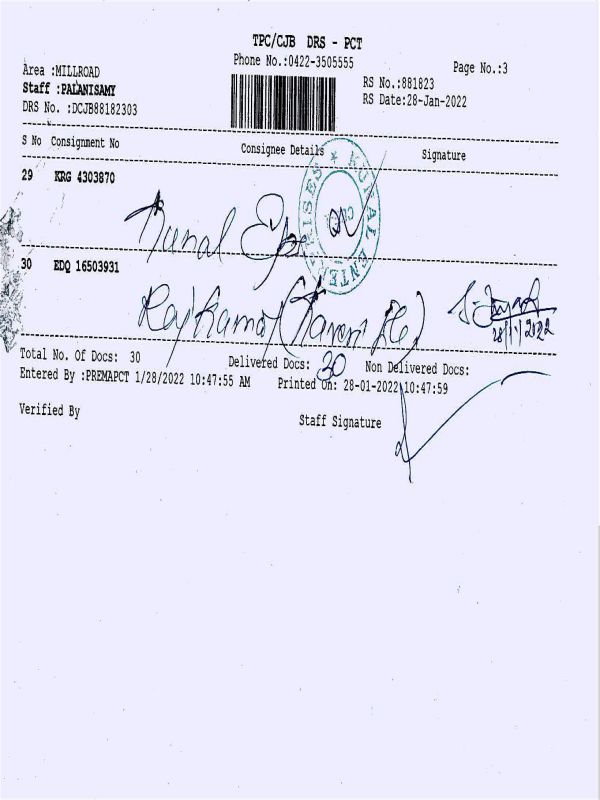 TPC/CJB DRS - PCT
Phone No.:0422-3505555
Page No.:3
Area :MILLROAD
Staff :PALANISAMY
DRS No. :DCJB88182303
RS No.:881823
RS Date:28-Jan-2022
S No Consignment No Consignee Details Signature
29 KRG 4303870
KUNAL ENTERPRISES
Kunal Eps
30 EDQ 16503931
Rajkamal
28/1/2022
Total No. Of Docs: 30 Delivered Docs: 30 Non Delivered Docs:
Entered By :PREMAPCT 1/28/2022 10:47:55 AM Printed On: 28-01-2022 10:47:59
Verified By Staff Signature